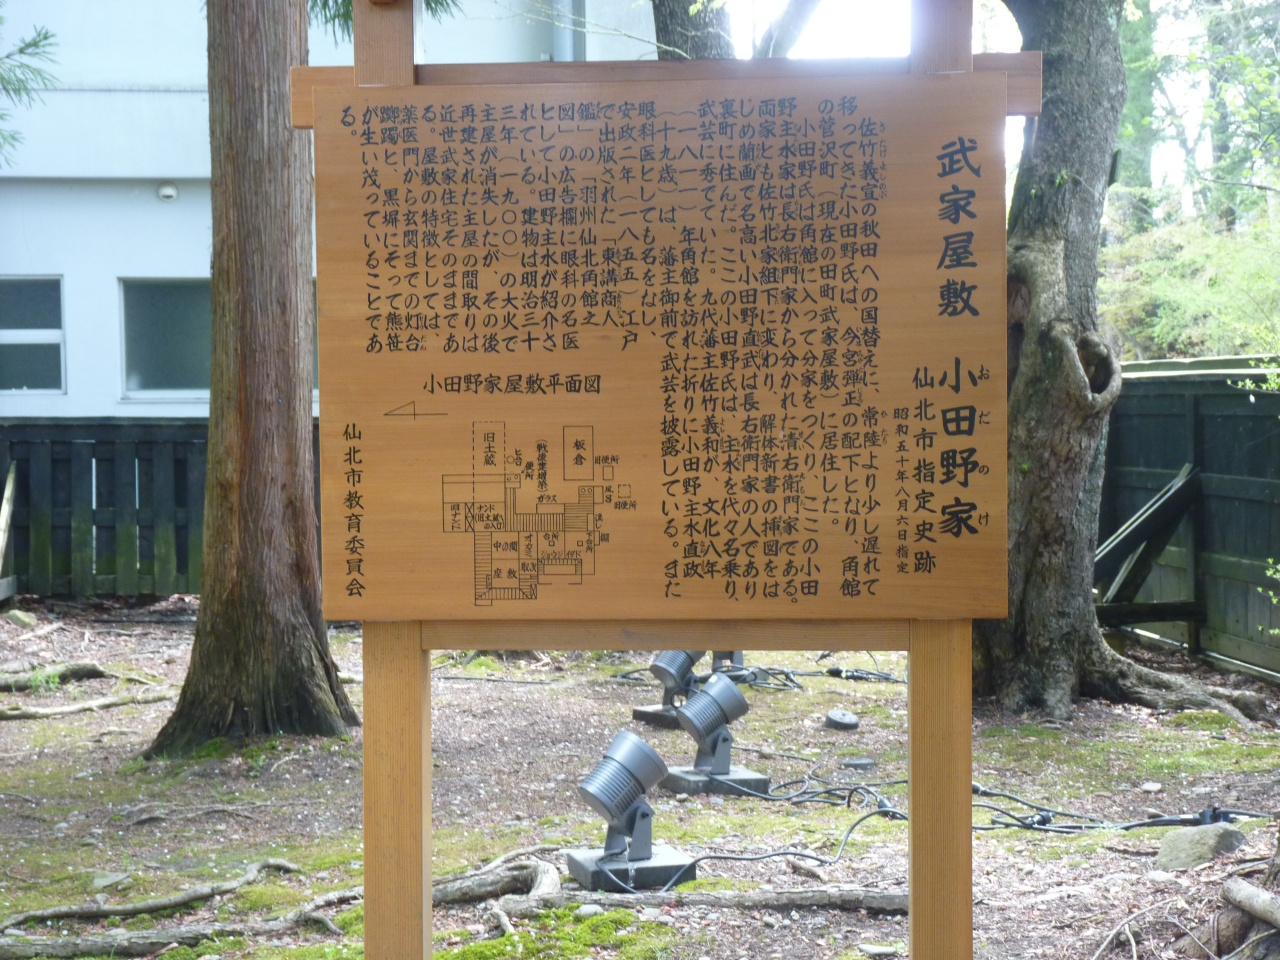 武家屋敷 小田野家
おだのけ
仙北市指定史跡
昭和五十年八月六日指定
佐竹義宣の秋田への国替えに、常陸より少し遅れて
移ってきた小田野氏は、今宮弾正の配下となり、角館
の菅沢町(現在の田町武家屋敷)に居住した。
小田野氏は角館に入って分家をつくり、ここの小田
野主水家は長右衛門家から分かれた清右衛門家である。
両家とも佐竹北家組下に変わり、解体新書の挿図をは
じめ蘭画で名高い小田野直武は長右衛門家の人であり
裏町に住んだ。この小田野氏は、主水を代々名乗り、
武芸に秀でていた。九代藩主佐竹義和が、文化八年
(一八一一)年角館を訪れた折りに小田野主水直政
(十九歳)は、藩主御前で武芸を披露している。また
眼科医としても名をなし、
安政二年(一八五五)江戸
で出版された「東講商人
鑑」の「羽州仙北角館之
図」の広告欄に眼科の名医
として小田野主水が紹介さ
れている。建物は明治三十
三年(一九〇〇)の大火で
主屋が消失したが、その後
再建された主屋の間取りは
近世武家住宅そのままであ
る。屋敷の特徴としては、
薬医門から玄関にそって熊笹
躑躅と、黒塀にそって灯台
が生い茂っていることであ
る。
小田野家屋敷平面図
旧土蔵
板倉
旧便所
風呂
旧便所
ガラス
ナンド
中の間
座敷
取次
仙北市教育委員会